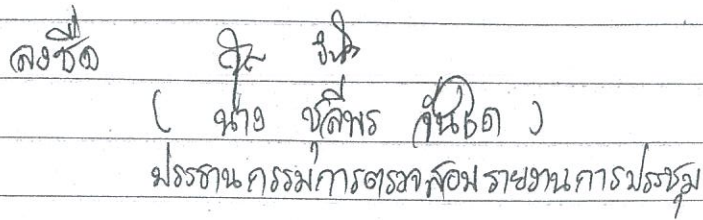 ลงชื่อ
( นาง ชุลีพร
ประธานกรรมการตรวจสอบรายงานการประชุม